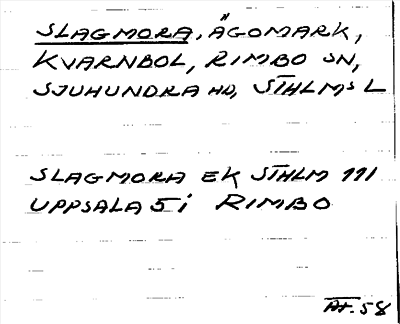 SLAGMORA, ÄGOMARK,
KVARNBOL, RIMBO SN,
SJUHUNDRA HD, STHLMS L
SLAGMORA EK STHLM 111
UPPSALA 5 i RIMBO
AT. 58